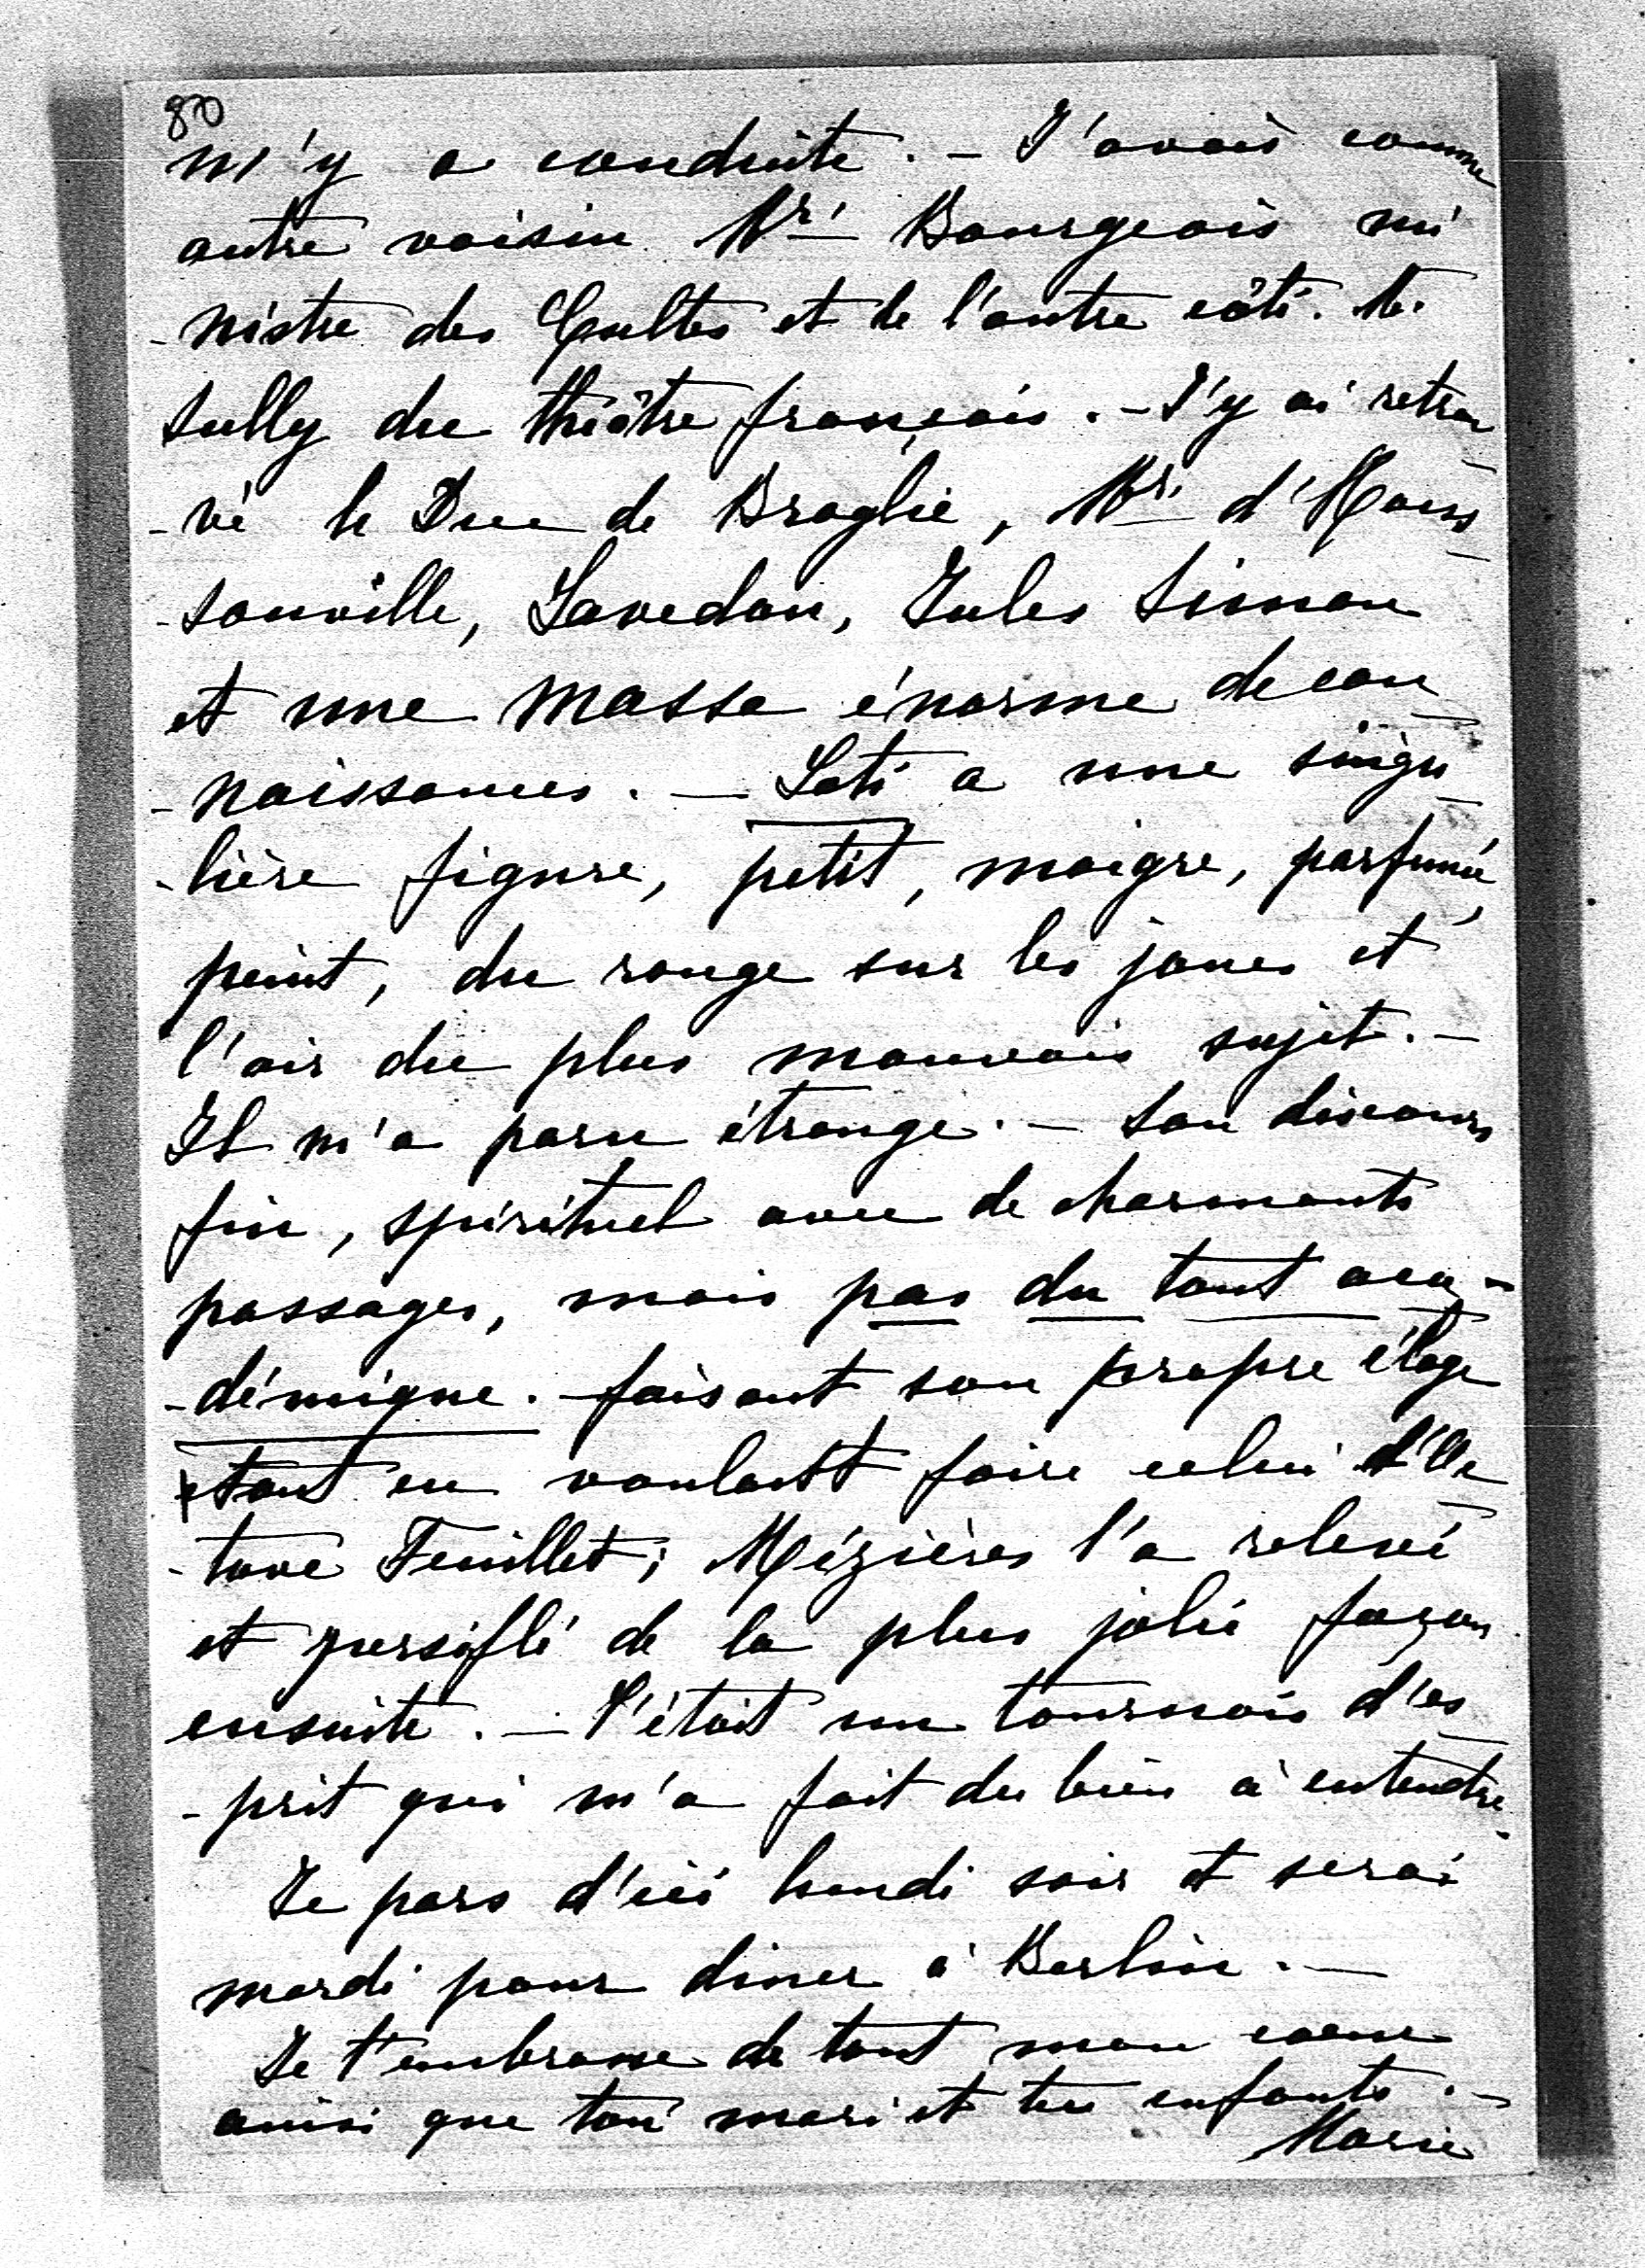 80
m'y a conduite. – J'avais comme
autre voisin Mr. Bourgeois mi
-nistre des Cultes et de l'autre côté. Mr.
Sully du théâtre français. – J'y ai retrou
-vé le Duc de Broglie, Mr. d'Haus
-sonville, Lavedan, Jules Simon
et une masse énorme de con
-naissances. – Loti a une singu
-lière figure, petit, maigre, parfumé,
peint, du rouge sur les joues et
l'air du plus mauvais sujet. –
Il m'a paru étrange. – Son discours
fin, spirituel avec de charmants
passages, mais pas du tout aca-
-démique. – faisant son propre éloge
tout en voulant faire celui d'Oc
-tave Feuillet; Mézières l'a relevé
et persiflé de la plus jolie façon
ensuite. – C'était un tournois d'es
-prit qui m'a fait du bien à entendre.
Je pars d'ici lundi soir et serai
mardi pour diner à Berlin. –
Je t'embrasse de tout mon coeur
ainsi que ton mari et tes enfants. –
Marie